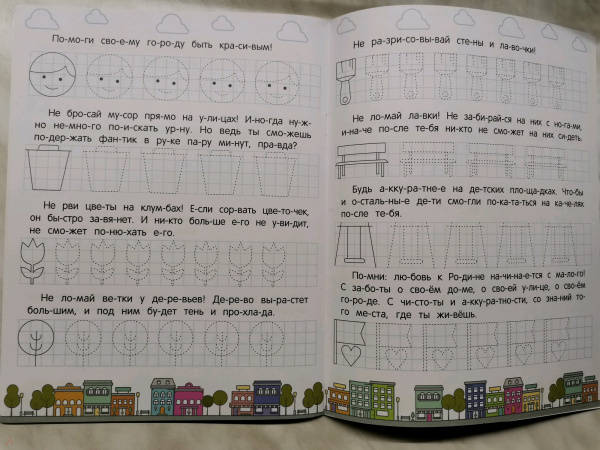 По-мо-ги сво-е-му го-ро-ду быть кра-си-вым!
Не бро-сай му-сор пря-мо на у-ли-цах! И-но-гда ну-ж-
но не-мно-го по-и-скать ур-ну. Но ведь ты смо-жешь
по-дер-жать фан-тик в ру-ке па-ру ми-нут, пра-вда?
Не рви цве-ты на клум-бах! Е-сли сор-вать цве-то-чек,
он бы-стро за-вя-нет. И ни-кто боль-ше е-го не у-ви-дит,
не смо-жет по-ню-хать е-го.
Не ло-май ве-тки у де-ре-вьев! Де-ре-во вы-ра-стет
боль-шим, и под ним бу-дет тень и про-хла-да.
Не ра-зри-со-вы-вай сте-ны и ла-во-чки!
Не ло-май ла-вки! Не за-би-рай-ся на них с но-га-ми,
и-на-че по-сле те-бя ни-кто не смо-жет на них си-деть.
Будь а-кку-ра-тне-е на де-тских пло-ща-дках. Что-бы
и о-сталь-ны-е де-ти смо-гли по-ка-та-ться на ка-че-лях
по-сле те-бя.
По-мни: лю-бовь к Ро-ди-не на-чи-на-е-тся с ма-ло-го!
С за-бо-ты о сво-ём до-ме, о сво-ей у-ли-це, о сво-ём
го-ро-де. С чи-сто-ты и а-кку-ра-тно-сти, со зна-ний то-
го ме-ста, где ты жи-вёшь.